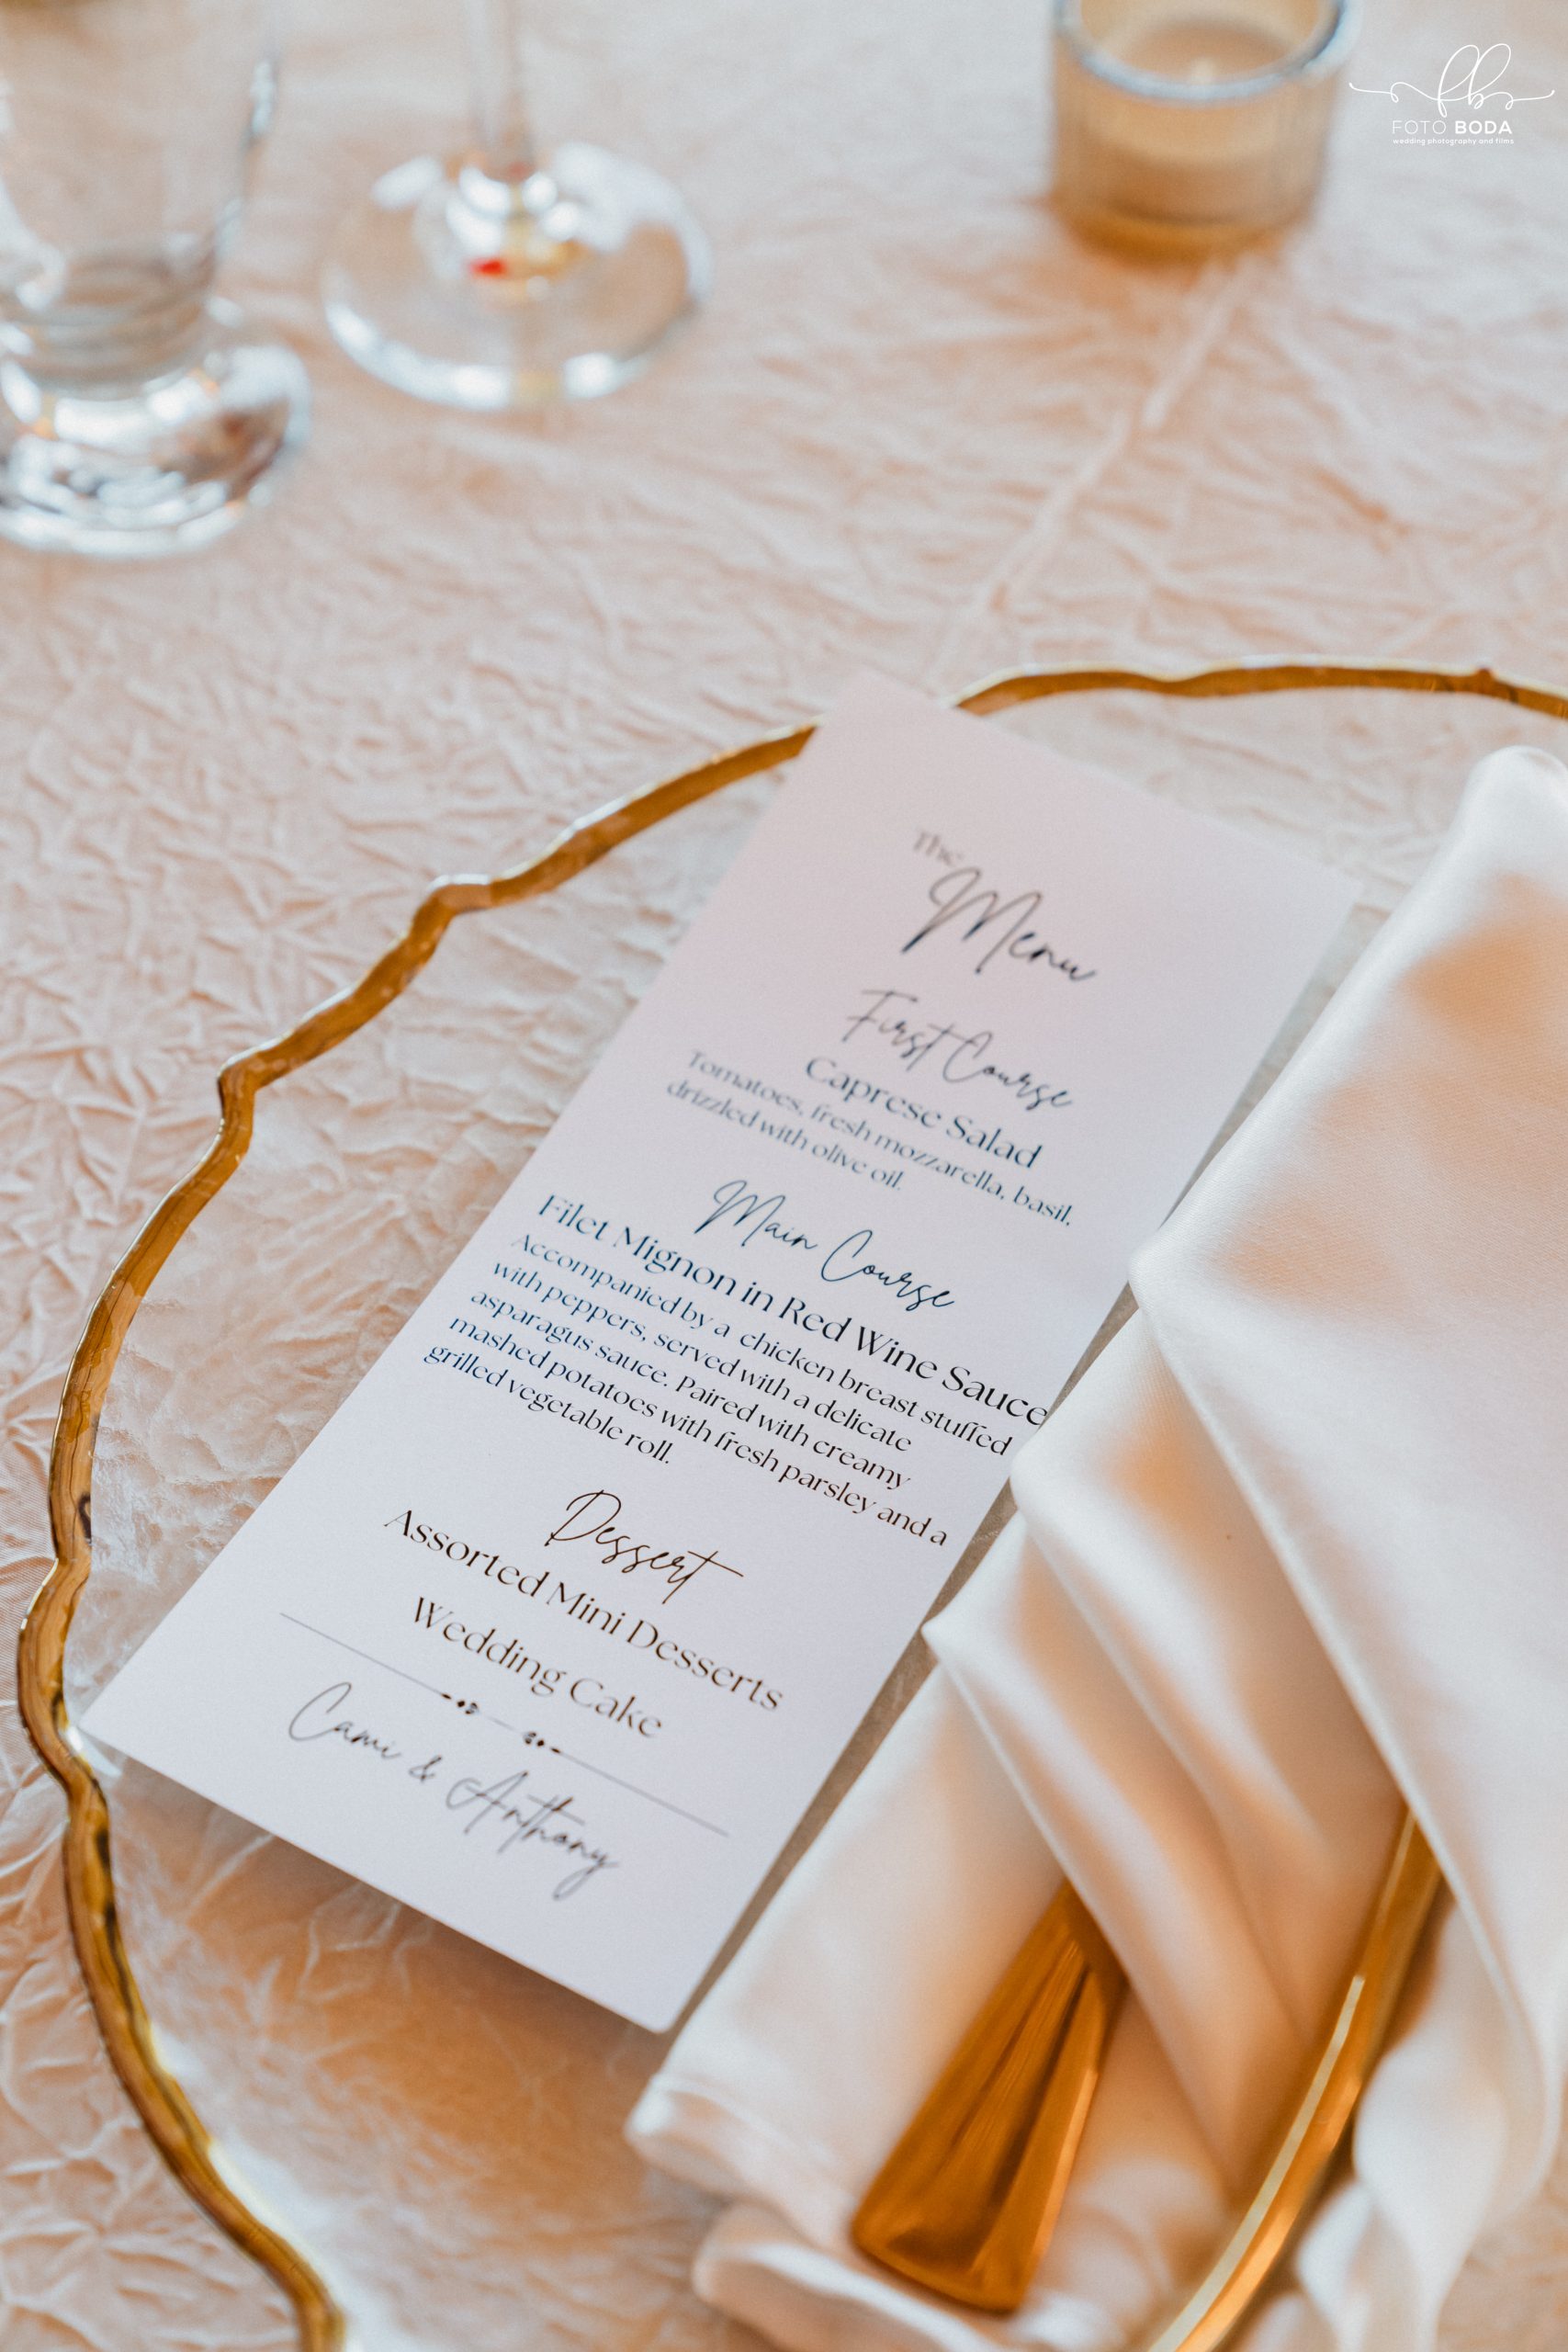 The
Menu
First Course
Caprese Salad
Tomatoes, fresh mozzarella, basil,
drizzled with olive oil.
Main Course
Filet Mignon in Red Wine Sauce
Accompanied by a chicken breast stuffed
with peppers, served with a delicate
asparagus sauce. Paired with creamy
mashed potatoes with fresh parsley and a
grilled vegetable roll.
Dessert
Assorted Mini Desserts
Wedding Cake
Cami & Anthony
fb
FOTO BODA
wedding photography and films